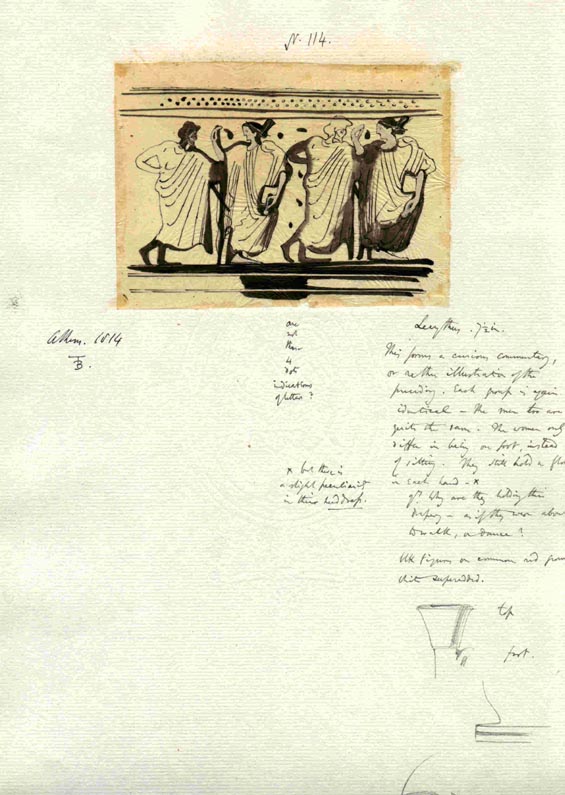 N. 114.
Athen. 1814
B.
are
not
these
4
dots
indications
of letters?
Lecythus. 7½ in.
This forms a curious commentary,
or rather illustration of the
preceding. Each group is again
identical – the men too are
quite the same – the women only
differ in being on foot, instead
of sitting. They still hold a
in each hand – x
q? Why are they holding their
drapery – as if they were about
to walk, or dance?
x but there is
a slight peculiarity
in their headdress.
Blk figures on common red
white superadded.
top
foot.